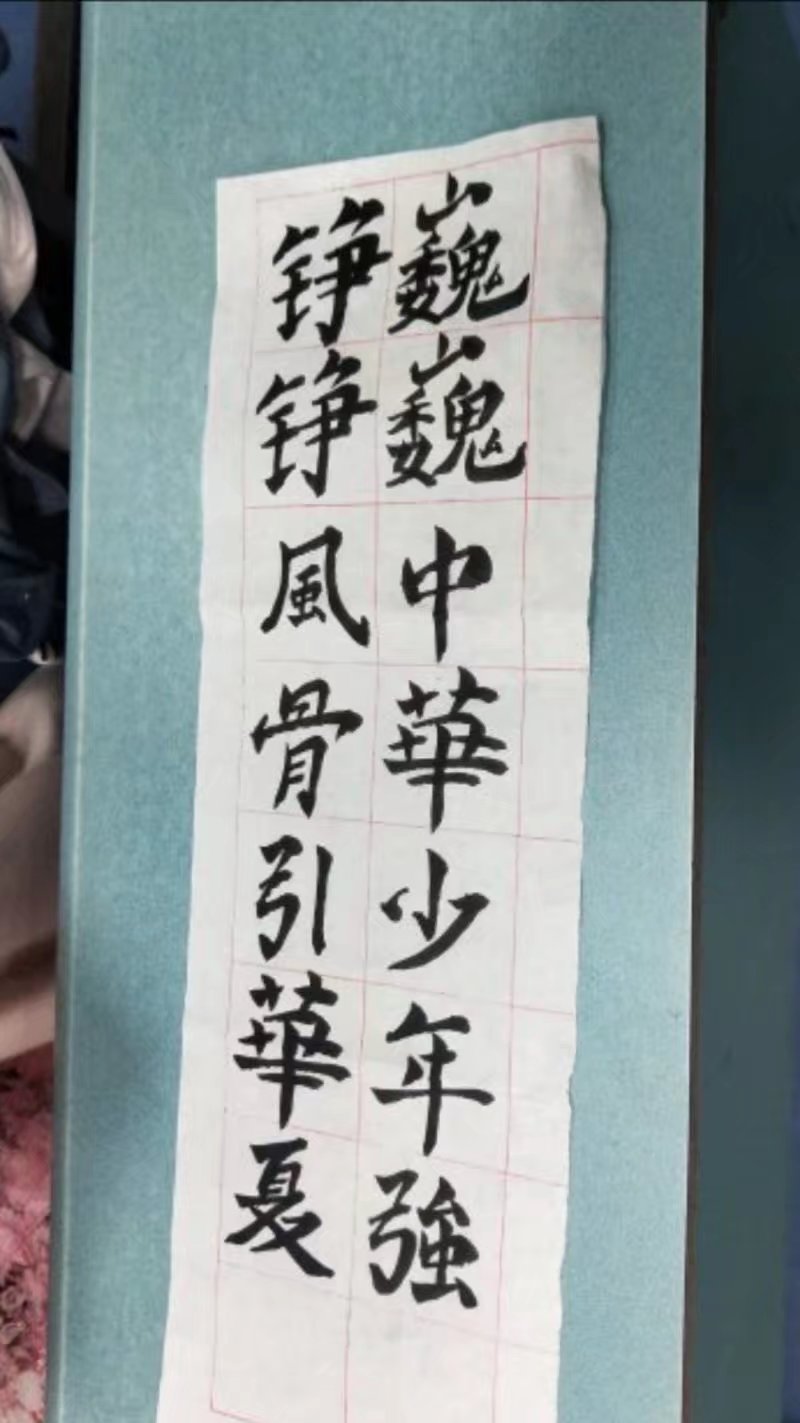 巍巍中華少年強
铮铮風骨引華夏